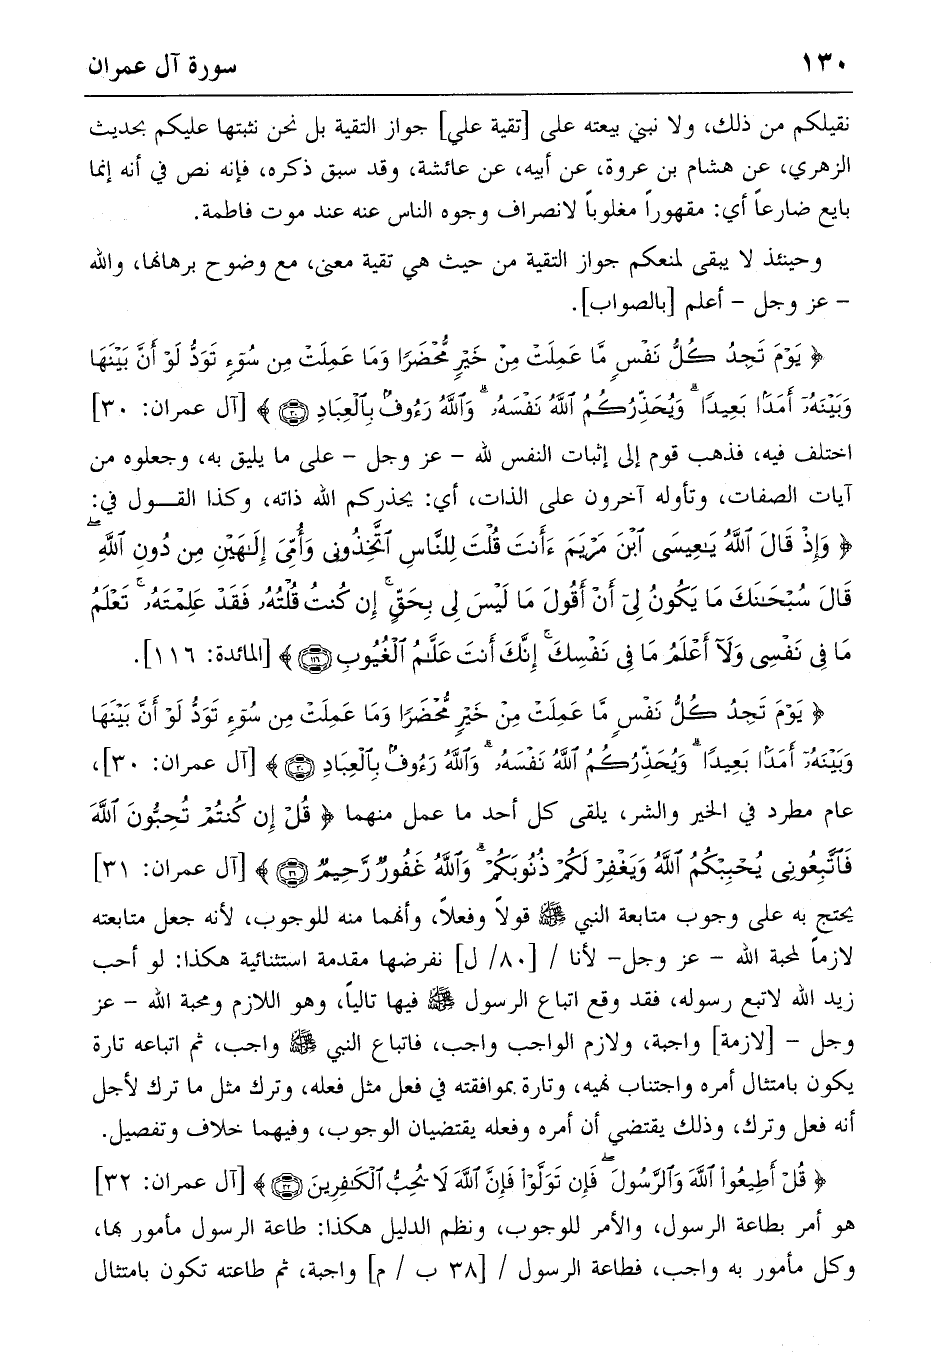 ١٣٠ سورة آل عمران
نقيلكم من ذلك، ولا نبني بيعته على [تقية علي] جواز التقية بل نحن نثبتها عليكم بحديث
الزهري، عن هشام بن عروة، عن أبيه، عن عائشة، وقد سبق ذكره، فإنه نص في أنه إنما
بايع ضارعاً أي: مقهوراً مغلوباً لانصراف وجوه الناس عنه عند موت فاطمة.
وحينئذ لا يبقى لمنعكم جواز التقية من حيث هي تقية معنى، مع وضوح برهانها، والله
– عز وجل – أعلم [بالصواب].
﴿ يَوْمَ تَجِدُ كُلُّ نَفْسٍ مَّا عَمِلَتْ مِنْ خَيْرٍ مُّحْضَرًا وَمَا عَمِلَتْ مِن سُوٓءٍ تَوَدُّ لَوْ أَنَّ بَيْنَهَا
وَبَيْنَهُۥٓ أَمَدًۢا بَعِيدًا ۗ وَيُحَذِّرُكُمُ ٱللَّهُ نَفْسَهُۥ ۗ وَٱللَّهُ رَءُوفٌۢ بِٱلْعِبَادِ ۝٣٠ ﴾ [آل عمران: ٣٠]
اختلف فيه، فذهب قوم إلى إثبات النفس لله – عز وجل – على ما يليق به، وجعلوه من
آيات الصفات، وتأوله آخرون على الذات، أي: يحذركم الله ذاته، وكذا القـــول في:
﴿ وَإِذْ قَالَ ٱللَّهُ يَـٰعِيسَى ٱبْنَ مَرْيَمَ ءَأَنتَ قُلْتَ لِلنَّاسِ ٱتَّخِذُونِى وَأُمِّىَ إِلَـٰهَيْنِ مِن دُونِ ٱللَّهِ ۖ
قَالَ سُبْحَـٰنَكَ مَا يَكُونُ لِىٓ أَنْ أَقُولَ مَا لَيْسَ لِى بِحَقٍّ ۚ إِن كُنتُ قُلْتُهُۥ فَقَدْ عَلِمْتَهُۥ ۚ تَعْلَمُ
مَا فِى نَفْسِى وَلَآ أَعْلَمُ مَا فِى نَفْسِكَ ۚ إِنَّكَ أَنتَ عَلَّـٰمُ ٱلْغُيُوبِ ۝١١٦ ﴾ [المائدة: ١١٦].
﴿ يَوْمَ تَجِدُ كُلُّ نَفْسٍ مَّا عَمِلَتْ مِنْ خَيْرٍ مُّحْضَرًا وَمَا عَمِلَتْ مِن سُوٓءٍ تَوَدُّ لَوْ أَنَّ بَيْنَهَا
وَبَيْنَهُۥٓ أَمَدًۢا بَعِيدًا ۗ وَيُحَذِّرُكُمُ ٱللَّهُ نَفْسَهُۥ ۗ وَٱللَّهُ رَءُوفٌۢ بِٱلْعِبَادِ ۝٣٠ ﴾ [آل عمران: ٣٠]،
عام مطرد في الخير والشر، يلقى كل أحد ما عمل منهما ﴿ قُلْ إِن كُنتُمْ تُحِبُّونَ ٱللَّهَ
فَٱتَّبِعُونِى يُحْبِبْكُمُ ٱللَّهُ وَيَغْفِرْ لَكُمْ ذُنُوبَكُمْ ۗ وَٱللَّهُ غَفُورٌ رَّحِيمٌ ۝٣١ ﴾ [آل عمران: ٣١]
يحتج به على وجوب متابعة النبي ﷺ قولاً وفعلاً، وأنهما منه للوجوب، لأنه جعل متابعته
لازماً لمحبة الله – عز وجل– لأنا / [٨٠/ ل] نفرضها مقدمة استثنائية هكذا: لو أحب
زيد الله لاتبع رسوله، فقد وقع اتباع الرسول ﷺ فيها تالياً، وهو اللازم ومحبة الله – عز
وجل – [لازمة] واجبة، ولازم الواجب واجب، فاتباع النبي ﷺ واجب، ثم اتباعه تارة
يكون بامتثال أمره واجتناب نهيه، وتارة بموافقته في فعل مثل فعله، وترك مثل ما ترك لأجل
أنه فعل وترك، وذلك يقتضي أن أمره وفعله يقتضيان الوجوب، وفيهما خلاف وتفصيل.
﴿ قُلْ أَطِيعُوا۟ ٱللَّهَ وَٱلرَّسُولَ ۖ فَإِن تَوَلَّوْا۟ فَإِنَّ ٱللَّهَ لَا يُحِبُّ ٱلْكَـٰفِرِينَ ۝٣٢ ﴾ [آل عمران: ٣٢]
هو أمر بطاعة الرسول، والأمر للوجوب، ونظم الدليل هكذا: طاعة الرسول مأمور بها،
وكل مأمور به واجب، فطاعة الرسول / [٣٨ ب / م] واجبة، ثم طاعته تكون بامتثال